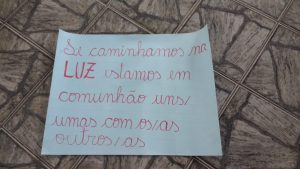 Se caminhamos na
LUZ estamos em
comunhão uns/
umas com os/as
outros/as